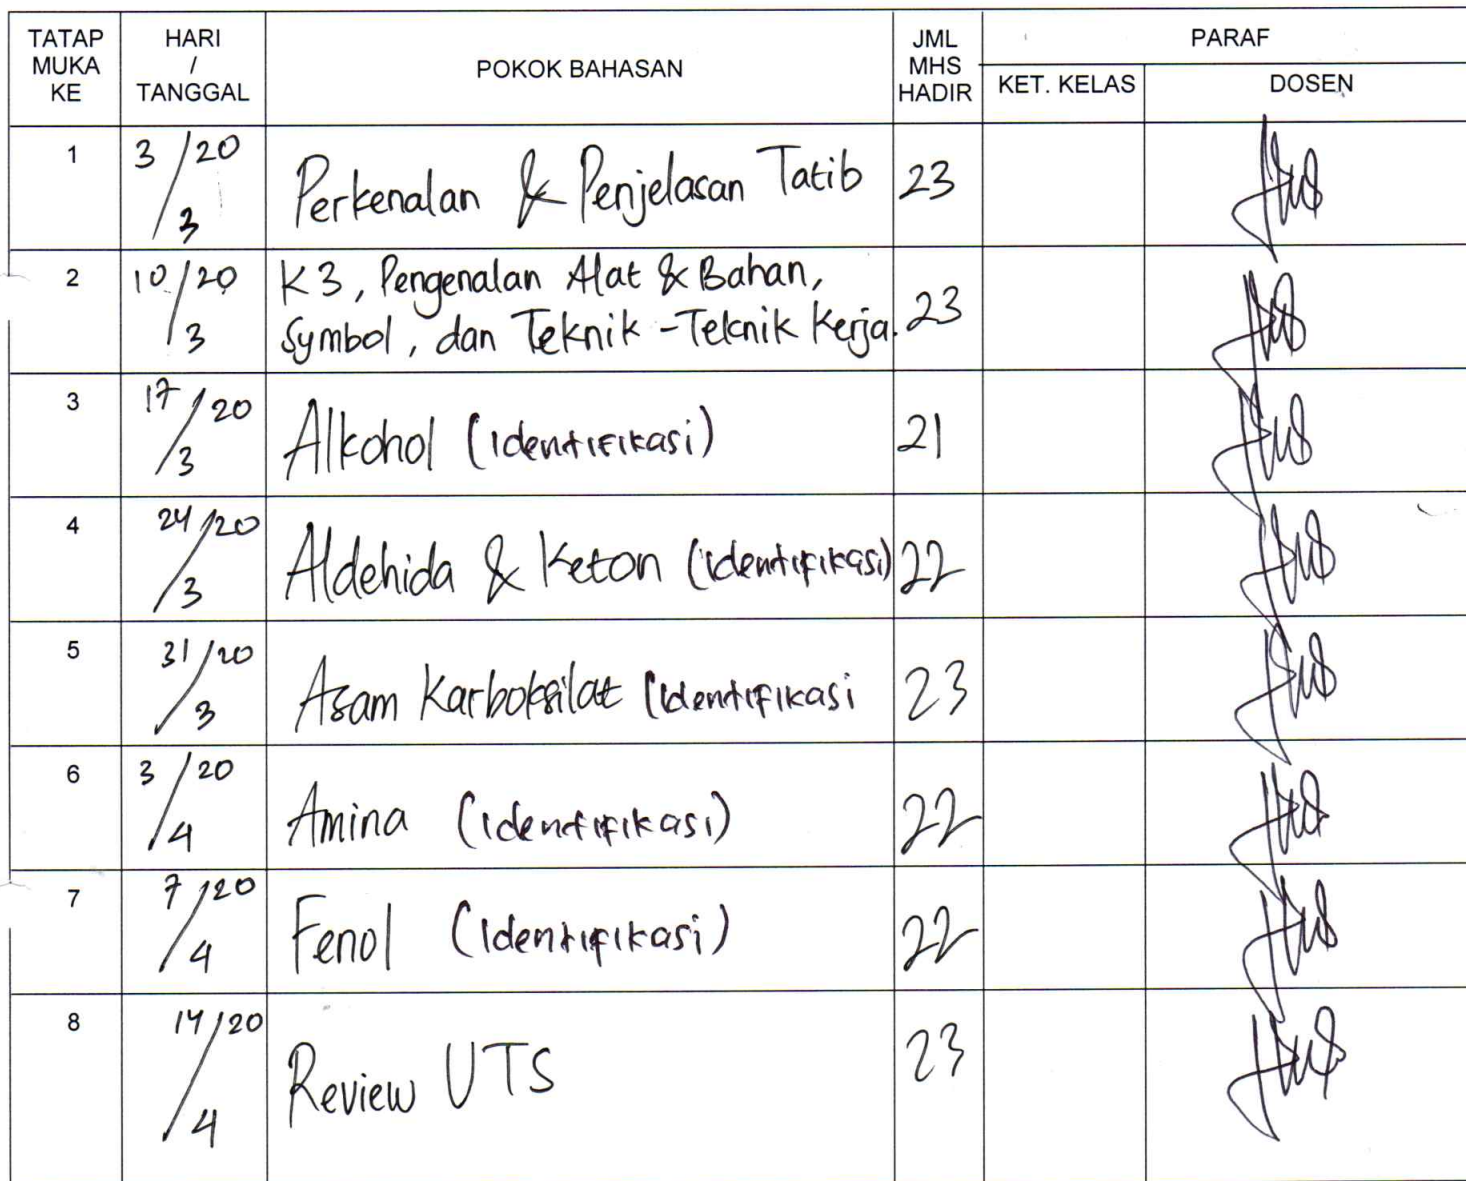 TATAP MUKA KE
HARI / TANGGAL
POKOK BAHASAN
JML MHS HADIR
PARAF
KET. KELAS
DOSEN
1 3/20 3 Perkenalan & Penjelasan Tatib 23
2 10/20 3 K3, Pengenalan Alat & Bahan,
Symbol, dan Teknik-Teknik Kerja. 23
3 17/20 3 Alkohol (Identifikasi) 21
4 24/20 3 Aldehida & Keton (identifikasi) 22
5 31/20 3 Asam Karboksilat (Identifikasi 23
6 3/20 4 Amina (Identifikasi) 22
7 7/20 4 Fenol (Identifikasi) 22
8 14/20 4 Review UTS 23